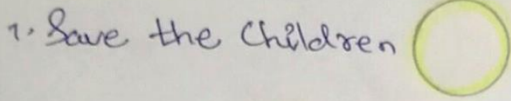 1. Save the Children